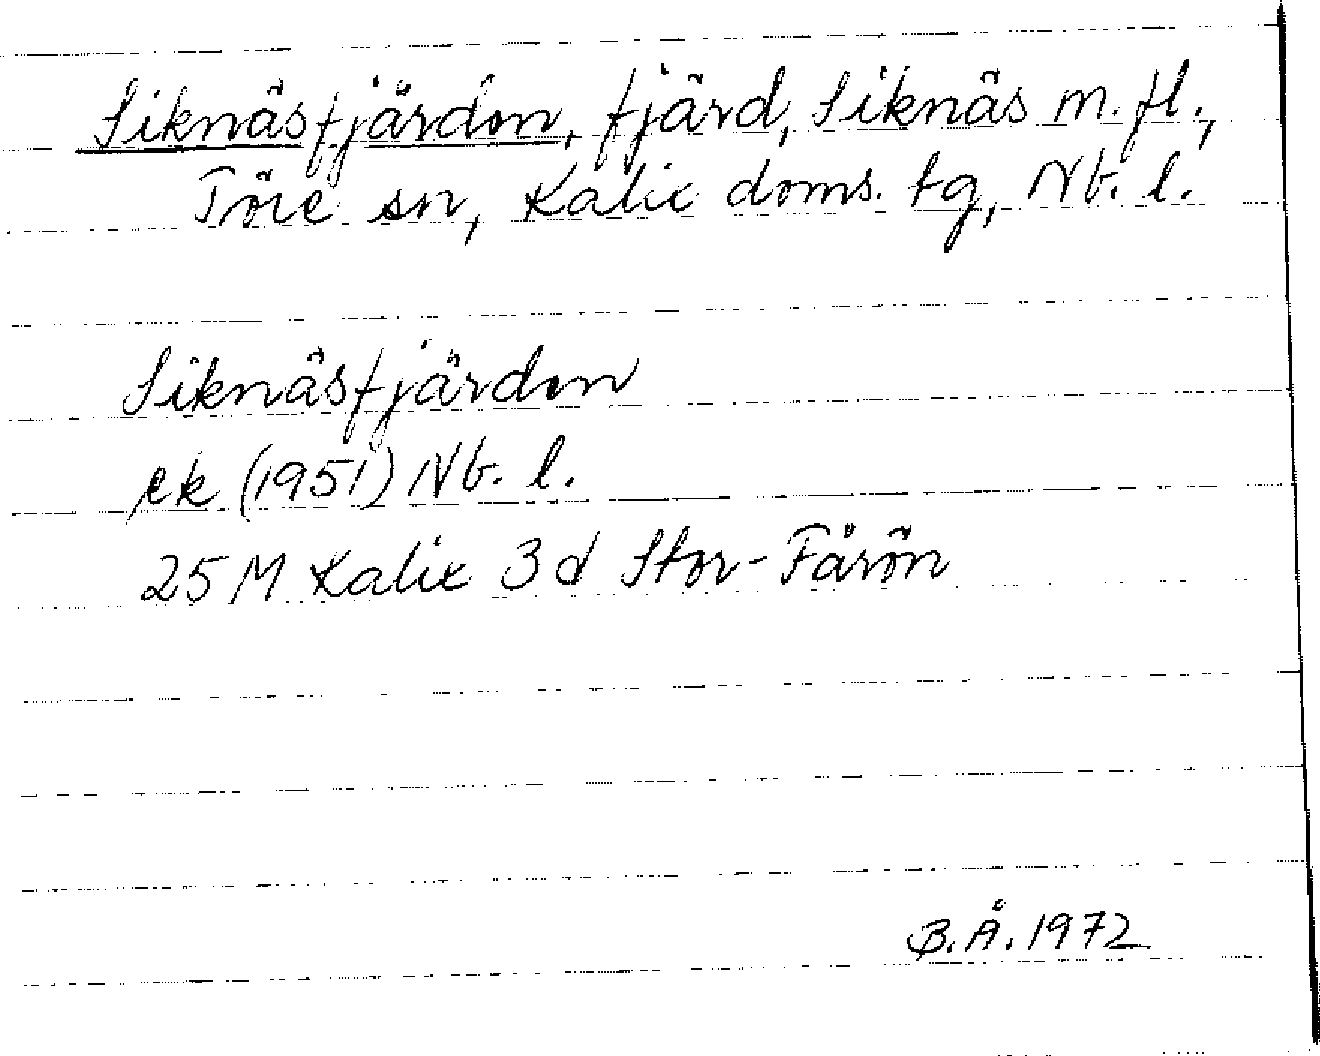 Siknäsfjärden, fjärd, Siknäs m. fl.,
Töre sn, Kalix doms. tg, Nb. l.
Siknäsfjärden
ek (1951) Nb. l.
25 M Kalix 3 d Stor-Färön
B.Å. 1972